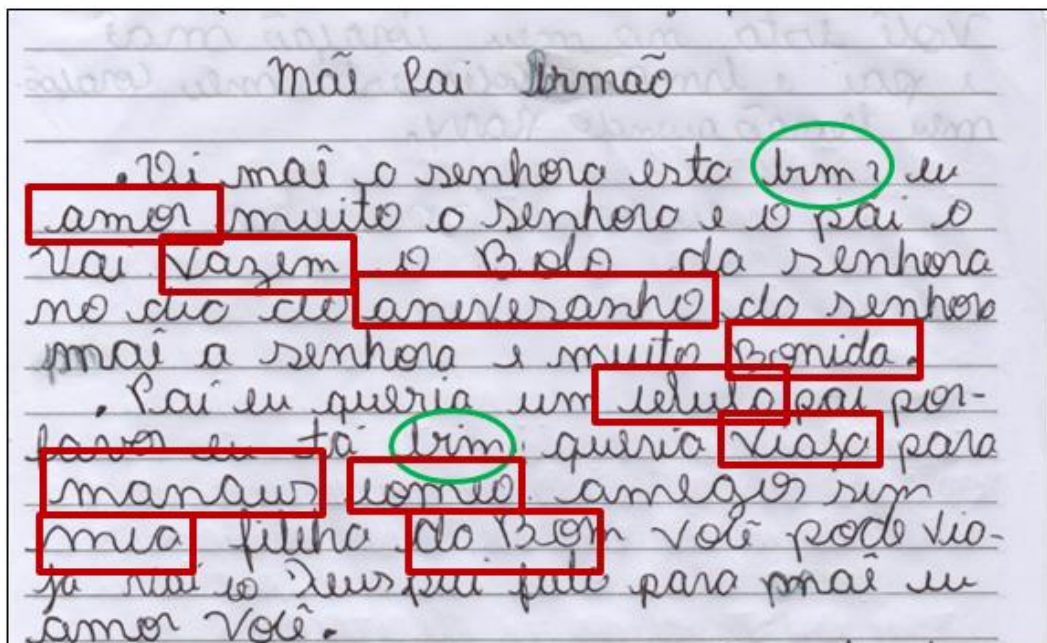 Mãe Pai Irmão
.Oi maê a senhora esta brm? eu
amor muito a senhora e o pai o
Vai vazem o Bolo da senhora
no dia do anivesanho da senhora
maê a senhora e muito Bonida.
. Pai eu queria um celulo pai por-
favor eu tá brim queria viaja para
manaus comeo amegos sim
mia filha do Bom você pode via-
ja vai co Deus pai fala para maê eu
amor você.